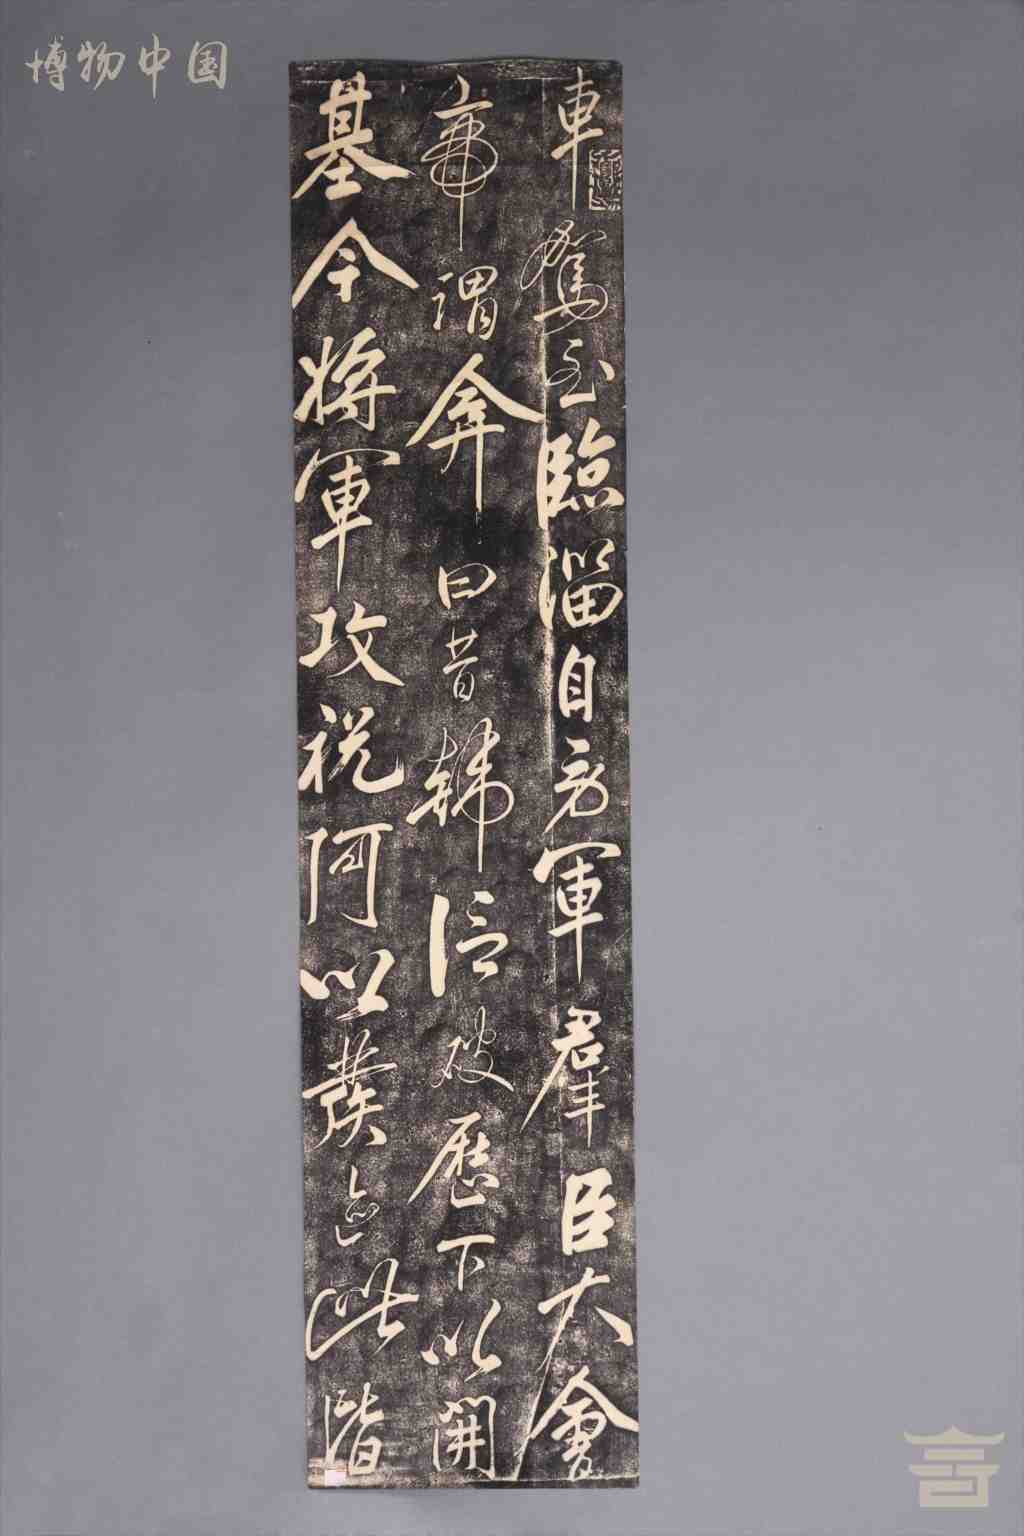 博物中国
車駕至臨淄自勞軍羣臣大會
帝謂弇曰昔韓信破歷下以開
基今將軍攻祝阿以發迹此皆